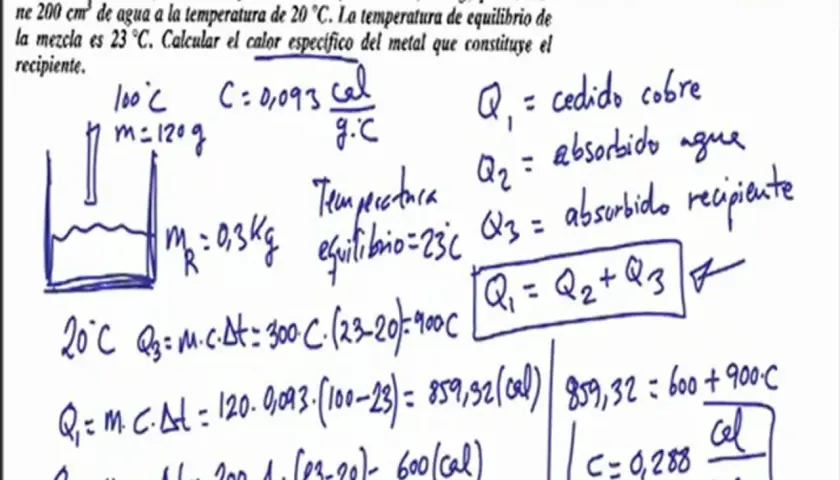 ne 200 cm³ de agua a la temperatura de 20 °C. La temperatura de equilibrio de
la mezcla es 23 °C. Calcular el calor específico del metal que constituye el
recipiente.
100°C
m=120g
C=0,093 cal/g.°C
m_R=0,3Kg
Temperatura
equilibrio=23°C
Q₁ = cedido cobre
Q₂ = absorbido agua
Q₃ = absorbido recipiente
Q₁ = Q₂ + Q₃
20°C Q₃=m.c.Δt=300.C.(23-20)=900C
Q₁=m.C.Δt=120.0,093.(100-23)=859,32(cal)
600(cal)
859,32=600+900.C
C=0,288 cal